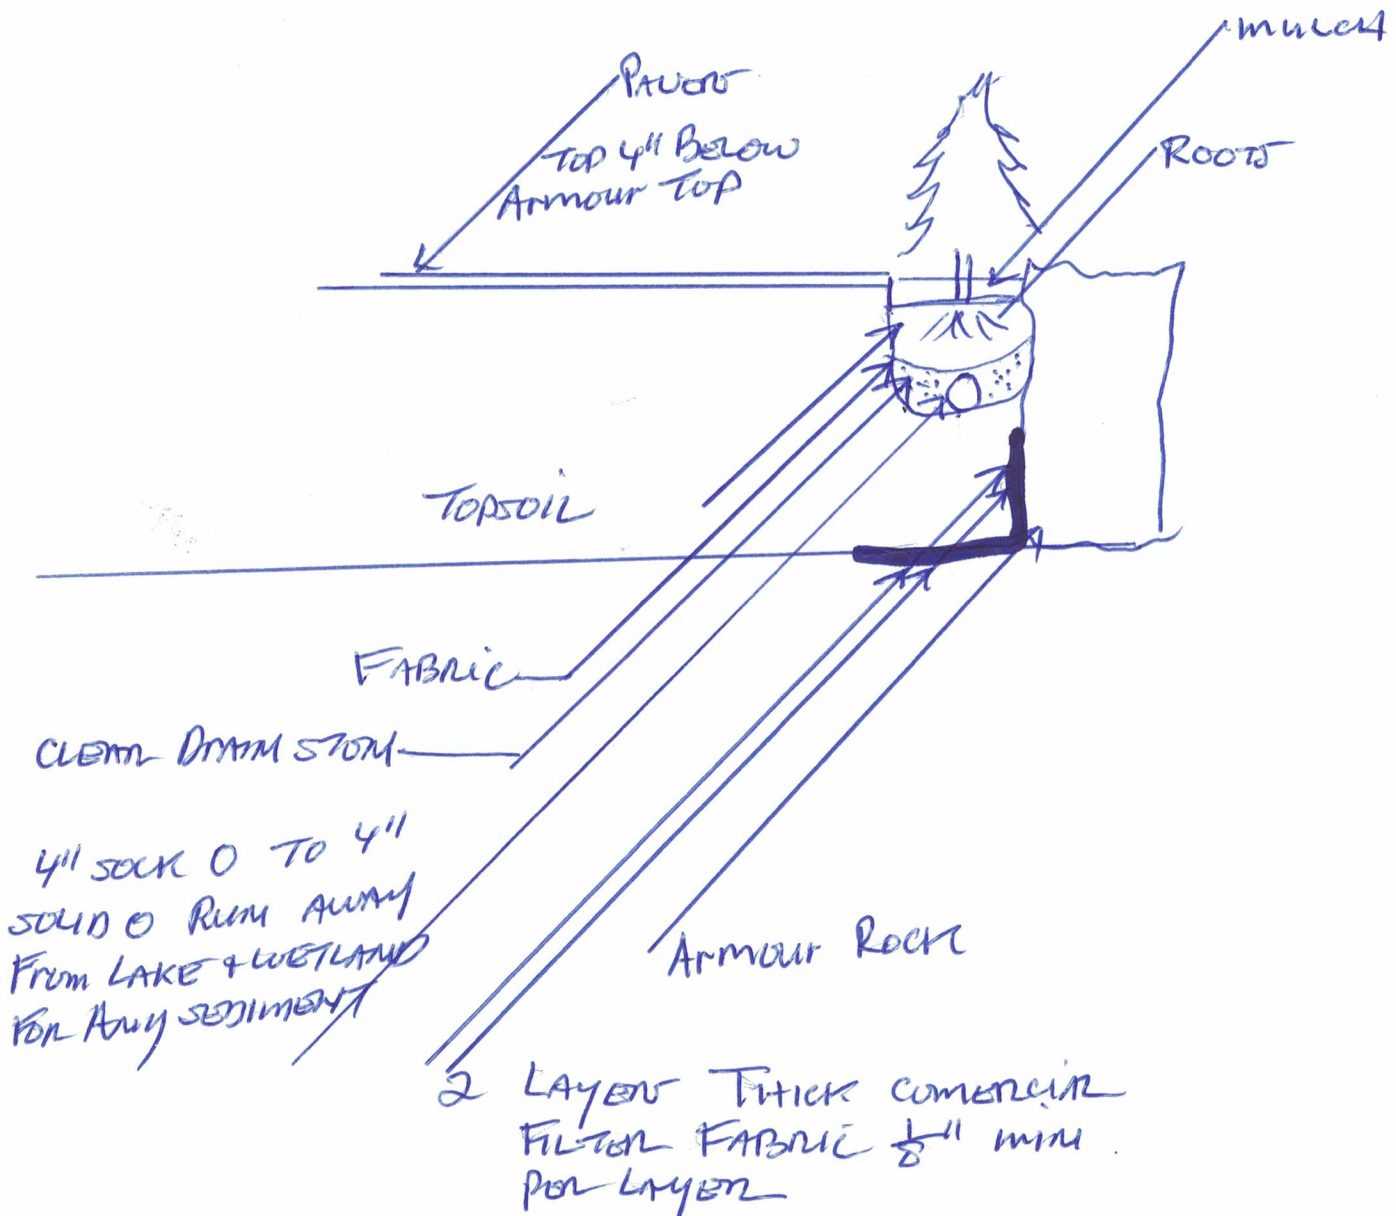 MULCH
PAVERS
TOP 4" BELOW
Armour TOP
ROOTS
TOPSOIL
FABRIC
CLEAR DRAIN STONE
4" SOCK O TO 4"
SOLID O RUN AWAY
From LAKE + WETLAND
FOR ANY SEDIMENT
Armour Rock
2 LAYERS THICK COMERCIAL
FILTER FABRIC 1/8" MIN
PER LAYER